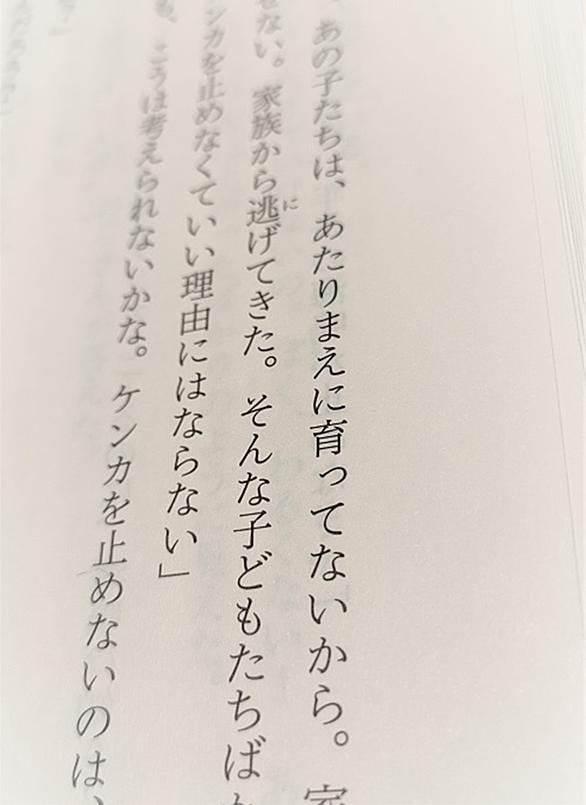 、あの子たちは、あたりまえに育ってないから。家
せない。家族から逃げてきた。そんな子どもたちばか
ンカを止めなくていい理由にはならない」
も、こうは考えられないかな。ケンカを止めないのは、